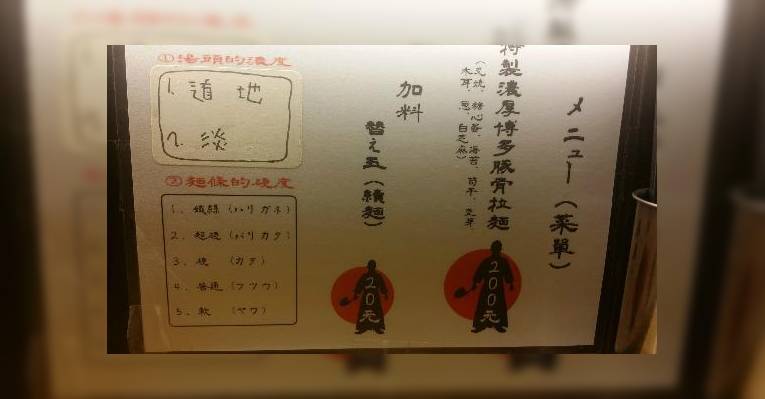 メニュー(菜單)
特製濃厚博多豚骨拉麵
(叉燒、糖心蛋、海苔、筍干、豆芽、
木耳、蔥、白芝麻)
200元
加料
替え玉(續麵)
20元
①湯頭的濃度
1. 道地
2. 淡
②麵條的硬度
1、鐵絲(ハリガネ)
2、超硬(バリカタ)
3、硬(カタ)
4、普通(フツウ)
5、軟(ヤワ)